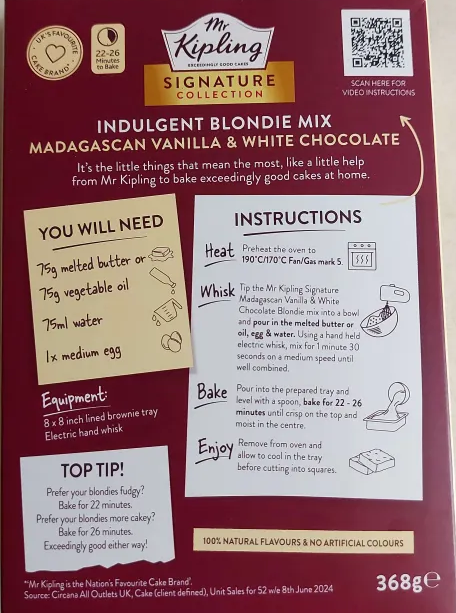 UK'S FAVOURITE
CAKE BRAND*
22-26
Minutes
to Bake
Mr
Kipling
EXCEEDINGLY GOOD CAKES
SIGNATURE
COLLECTION
SCAN HERE FOR
VIDEO INSTRUCTIONS
INDULGENT BLONDIE MIX
MADAGASCAN VANILLA & WHITE CHOCOLATE
It's the little things that mean the most, like a little help
from Mr Kipling to bake exceedingly good cakes at home.
YOU WILL NEED
75g melted butter or
75g vegetable oil
75ml water
1x medium egg
Equipment:
8 x 8 inch lined brownie tray
Electric hand whisk
TOP TIP!
Prefer your blondies fudgy?
Bake for 22 minutes.
Prefer your blondies more cakey?
Bake for 26 minutes.
Exceedingly good either way!
INSTRUCTIONS
Heat
Preheat the oven to
190°C/170°C Fan/Gas mark 5.
Whisk
Tip the Mr Kipling Signature
Madagascan Vanilla & White
Chocolate Blondie mix into a bowl
and pour in the melted butter or
oil, egg & water. Using a hand held
electric whisk, mix for 1 minute 30
seconds on a medium speed until
well combined.
Bake
Pour into the prepared tray and
level with a spoon, bake for 22 - 26
minutes until crisp on the top and
moist in the centre.
Enjoy
Remove from oven and
allow to cool in the tray
before cutting into squares.
100% NATURAL FLAVOURS & NO ARTIFICIAL COLOURS
*'Mr Kipling is the Nation's Favourite Cake Brand'.
Source: Circana All Outlets UK, Cake (client defined), Unit Sales for 52 w/e 8th June 2024
368g℮